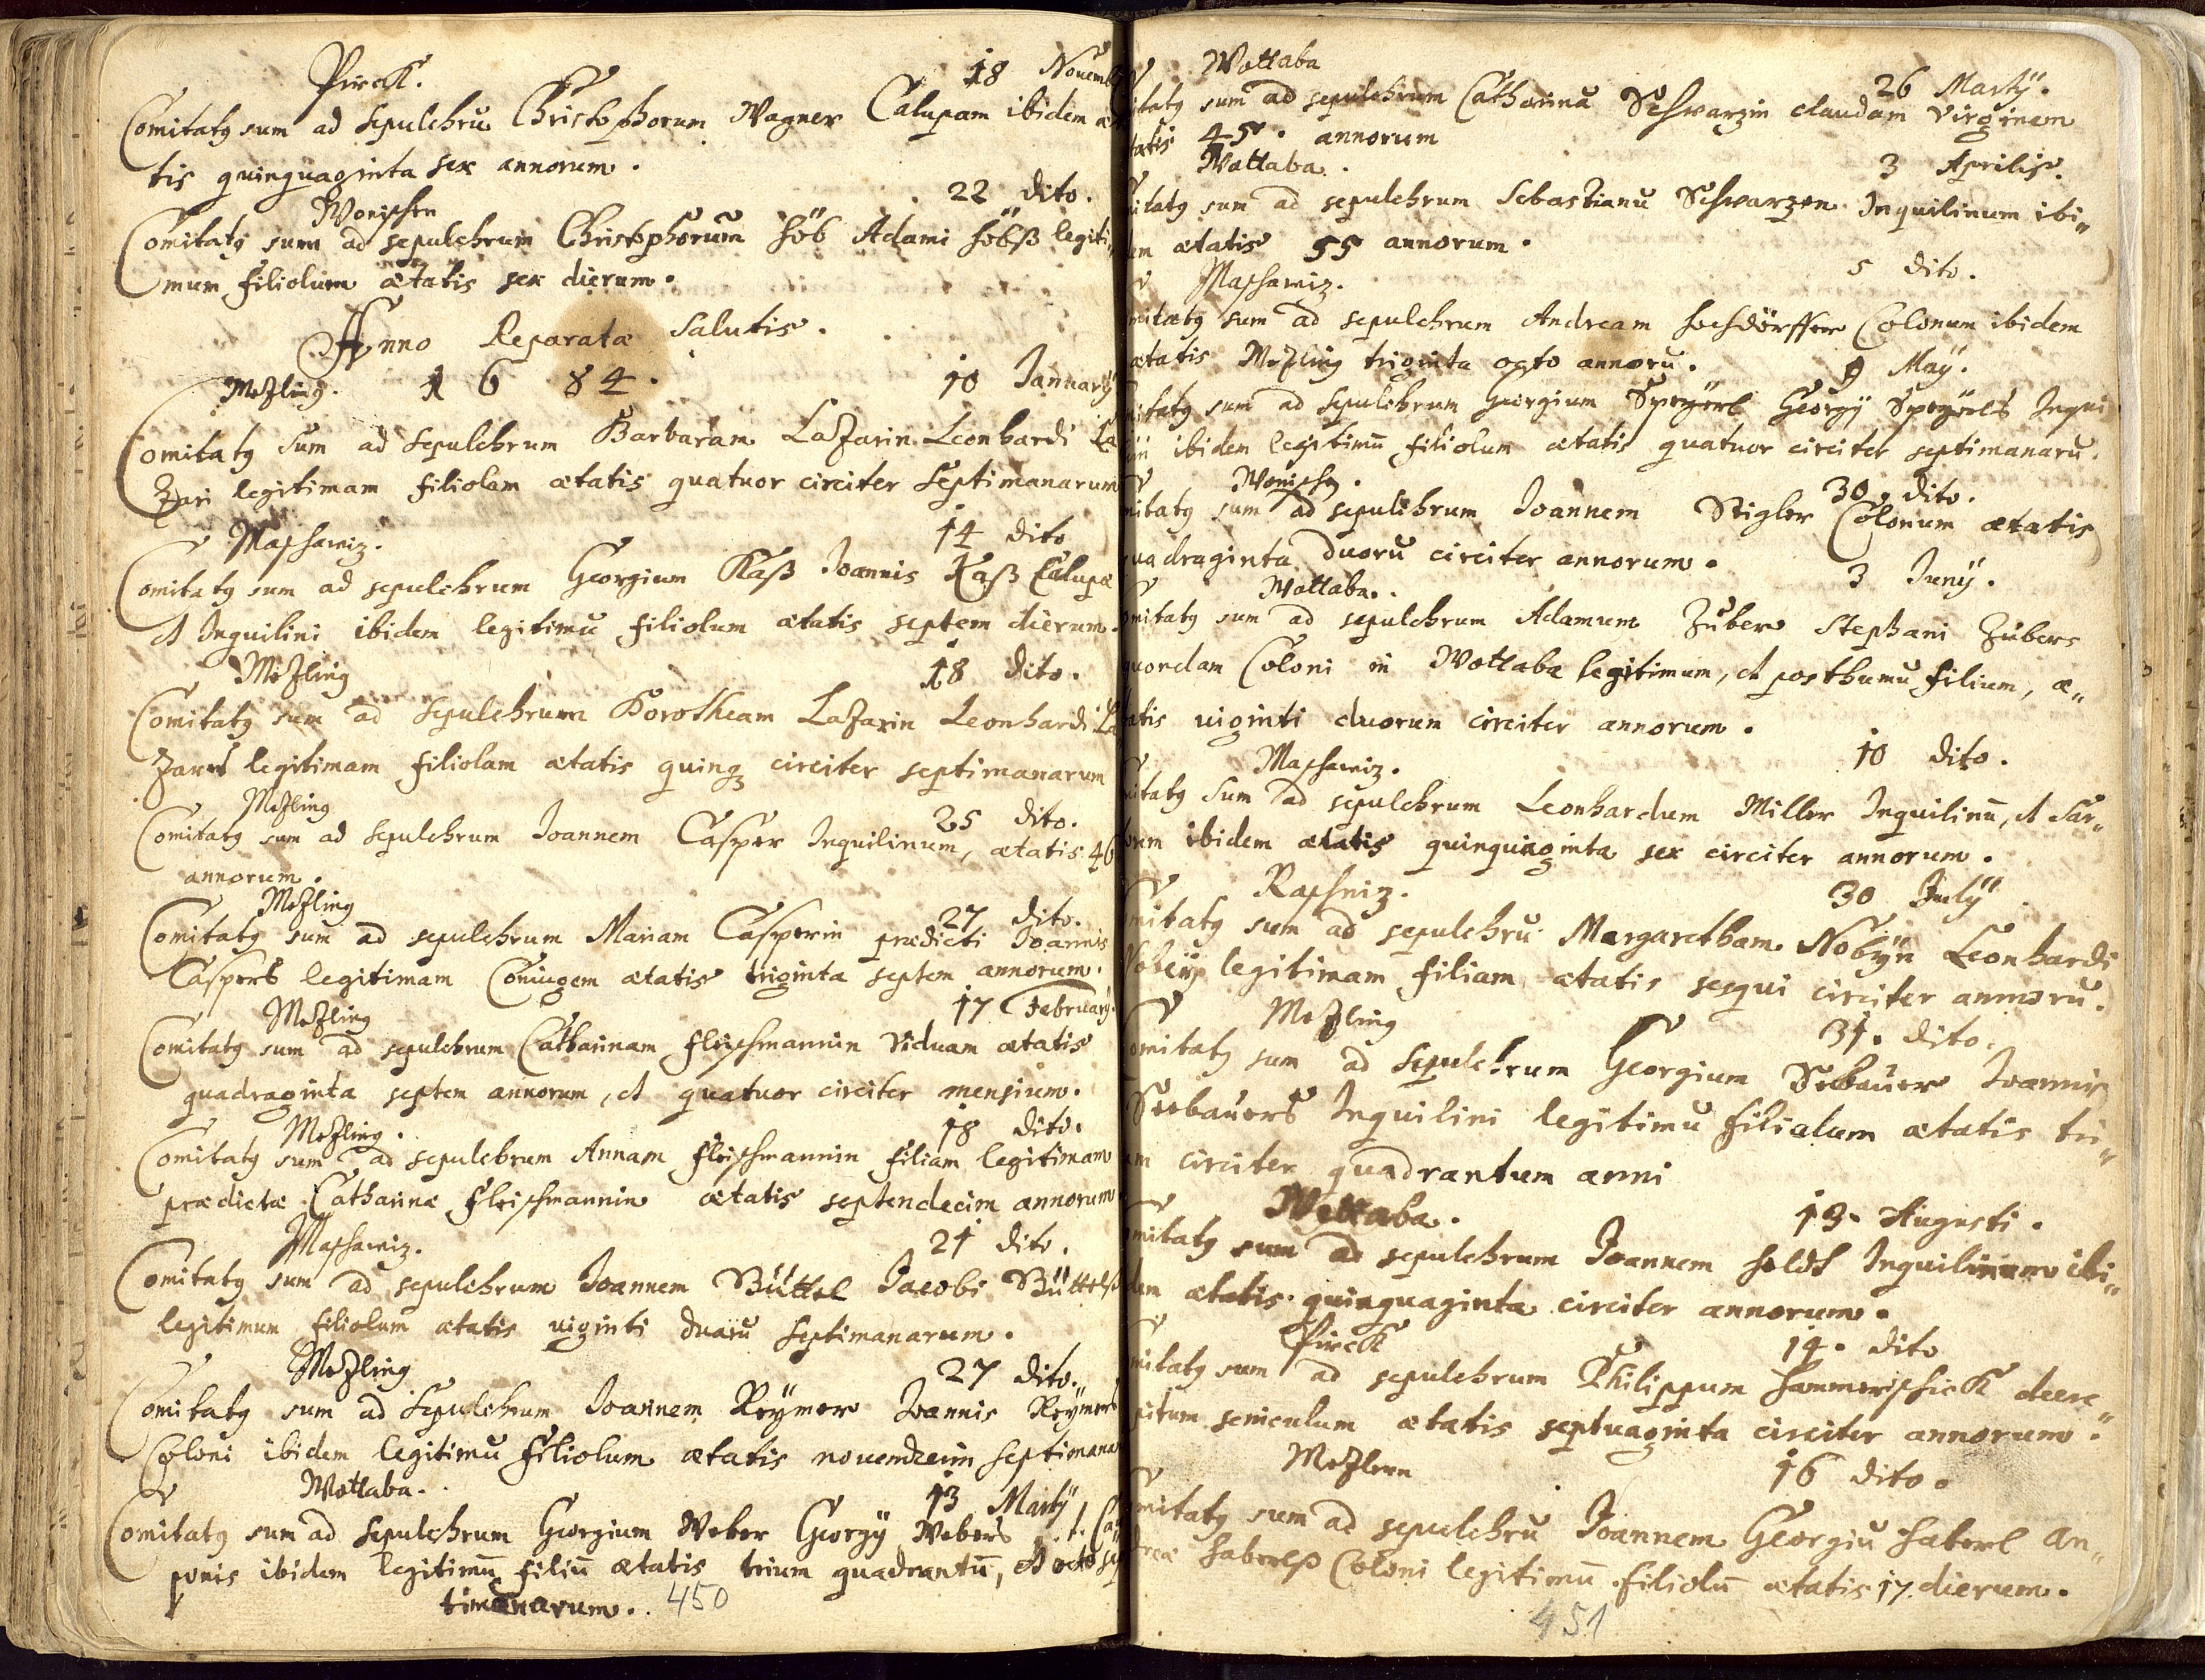 Pirck. 18 Novemb
Comitatq sum ad sepulchrũ Christophorum Wagner Calupam ibidem æ
tis quinquaginta sex annorum.
Wonischen 22 dito.
Comitatq sum ad sepulchrum Christophorum Höb Adami Höbß legiti„
mum filiolum ætatis sex dierum.
Anno Reparatæ Salutis.
Mezling. 1684. 10 January
Comitatq sum ad sepulchrum Barbaram Lazarin Leonhardi La
zari legitimam filiolam ætatis quatuor circiter septimanarum
Maschawiz. 14 dito
Comitatq sum ad sepulchrum Georgium Kaß Joannis Kaß Calupæ
et Inquilini ibidem legitimũ filiolum ætatis septem dierum.
Mezling 18 dito.
Comitatq sum ad sepulchrum Dorotheam Lazarin Leonhardi La
zarrs legitimam filiolam ætatis quinq circiter septimanarum
Mezling 25 dito.
Comitatq sum ad sepulchrum Joannem Casper Inquilinum, ætatis 46
annorum.
Mezling 27 dito.
Comitatq sum ad sepulchrum Mariam Casperin prædicti Joannis
Caspers legitimam Coniugem ætatis triginta septem annorum.
Mezling 17 February.
Comitatq sum ad sepulchrum Catharinam Fleischmannin Viduam ætatis
quadraginta septem annorum, et quatuor circiter mensium.
Mezling. 18 dito.
Comitatq sum ad sepulchrum Annam Fleischmannin filiam legitimam
prædictæ Catharinæ Fleischmannin ætatis septendecim annorum
Maschawiz. 21 dito.
Comitatq sum ad sepulchrum Joannem Büttel Jacobi Büttelß
legitimum filiolum ætatis viginti duarũ septimanarum.
Mezling 27 dito.
Comitatq sum ad sepulchrum Joannem Reÿmer Joannis Reÿmers
Coloni ibidem legitimũ filiolum ætatis novendecim septimana
Wottaba. 13 Martÿ
Comitatq sum ad sepulchrum Georgium Weber Georgÿ Webers
ponis ibidem legitimũ filiũ ætatis trium quadrantũ, et octo sep
timanarum. 450
Wottaba 26 Martÿ.
itatq sum ad sepulchrum Catharinã Schwarzin claudam virginem
tatis 45. annorum
Wottaba. 3 Aprilis.
itatq sum ad sepulchrum Sebastianũ Schwarzen Inquilinum ibi„
em ætatis 55 annorum.
Maschawiz. 5 dito.
mitatq sum ad sepulchrum Andream Hochdörffer Colonum ibidem
ætatis Mezling triginta octo annorũ. 9 Maÿ.
mitatq sum ad sepulchrum Georgium Speÿerl Georgÿ Speÿerls Inqui
ibidem legitimũ filiolum ætatis quatuor circiter septimanarũ.
Wonischen. 30. dito.
mitatq sum ad sepulchrum Joannem Stigler Colonum ætatis
uadraginta duorũ circiter annorum.
Wottaba. 3 Junÿ.
omitatq sum ad sepulchrum Adamum Zuber Stephani Zubers
quondam Coloni in Wottaba legitimum, et posthumũ filium, æ„
tatis viginti duorum circiter annorum.
Maschawiz. 10 dito.
itatq sum ad sepulchrum Leonhardum Miller Inquilinũ, et Sar„
torem ibidem ætatis quinquaginta sex circiter annorum.
Raschniz. 30 Julÿ
omitatq sum ad sepulchrũ Margaretham Nobÿn Leonhardi
legitimam filiam ætatis sesqui circiter annorũ.
Mezling 31. dito.
omitatq sum ad sepulchrum Georgium Seebauer Joannis
Seebauers Inquilini legitimũ filiolum ætatis tri„
um circiter quadrantum anni
Wottaba. 13. Augusti.
mitatq sum ad sepulchrum Joannem Holdt Inquilinum ibi„
dem ætatis quinquaginta circiter annorum.
Pirck 14. dito
mitatq sum ad sepulchrum Philippum Hammerschick decre„
pitum seniculum ætatis septuaginta circiter annorum.
Mezlern 16 dito.
omitatq sum ad sepulchrũ Joannem Georgiũ Haberl An„
dreæ Haberlß Coloni legitimũ filiolũ ætatis 17 dierum.
451